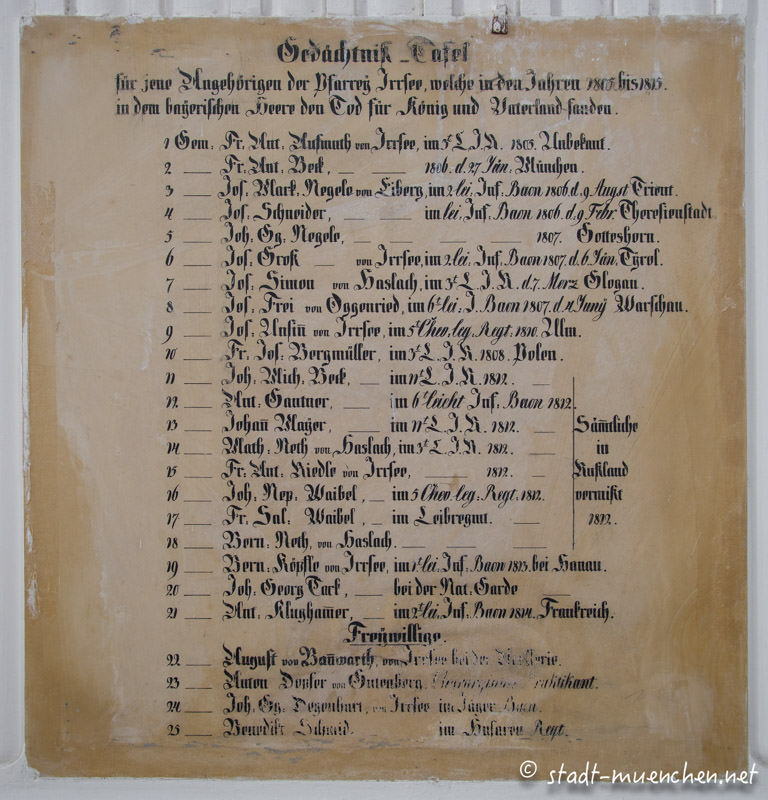 Gedächtniß-Tafel
für jene Angehörigen der Pfarreÿ Irrsee, welche in den Jahren 1805 bis 1815.
in dem bayerischen Heere den Tod für König und Vaterland fanden.
1 Gem: Fr. Ant: Aufmuth von Irrsee, im 3t. L. I. R. 1805. Unbekant.
2 — Fr. Ant: Beck, — — 1806. d. 27 Jän: München.
3 — Jos. Mark: Negele von Eiberg, im 2. lei. Inf: Baon 1806. d. 9 Augst Trient.
4 — Jos. Schneider, — — im lei. Inf: Baon 1806. d. 9 Febr. Theresienstadt
5 — Joh. Gg: Negele, — — — — 1807. Gotteshorn.
6 — Jos. Groß — von Irrsee, im 2. lei. Inf: Baon 1807. d. 6 Jän. Tÿrol.
7 — Jos: Simon von Haslach, im 3t. L. I. R. d. 7. Merz Glogau.
8 — Jos: Frei von Oggenried, im 6t. lei: I. Baon 1807. d. 4 Junÿ Warschau.
9 — Jos: Unsiñ von Irrsee, im 5t Chev. leg. Regt. 1810. Ulm.
10 — Fr. Jos: Bergmüller, im 3t. L. I. R. 1808. Polen.
11 — Joh: Mich: Beck, — im 11t. L. I. R. 1812. —
12 — Ant: Gautner, — im 6t leicht Inf: Baon 1812.
13 — Johañ Maÿer, — im 11t. L. I. R. 1812. — Sämtliche
14 — Math: Neth von Haslach, im 3t. L. I. R. 1812. — in
15 — Fr: Ant: Riedle von Irrsee, — 1812. — Rußland
16 — Joh: Nep: Waibel, — im 5 Chev. leg: Regt: 1812. vermißt
17 — Fr: Sal: Waibel, — im Leibregmt. — 1812.
18 — Bern: Neth, von Haslach. — — —
19 — Bern: Köpfle von Irrsee, im 1t. lei: Inf: Baon 1813. bei Hanau.
20 — Joh: Georg Tark, — bei der Nat: Garde —
21 — Ant: Klugham̃er, — im 2t. lei. Inf: Baon 1814. Frankreich.
Freÿwillige.
22 — August von Bañwarth, von Irrsee bei der Artillerie.
23 — Anton Dopser von Gutenberg, Praktikant.
24 — Joh: Gg: Degenhart, von Irrsee im Jäger Baon.
25 — Benedikt Schmid. im Husaren Regt.
© stadt-muenchen.net